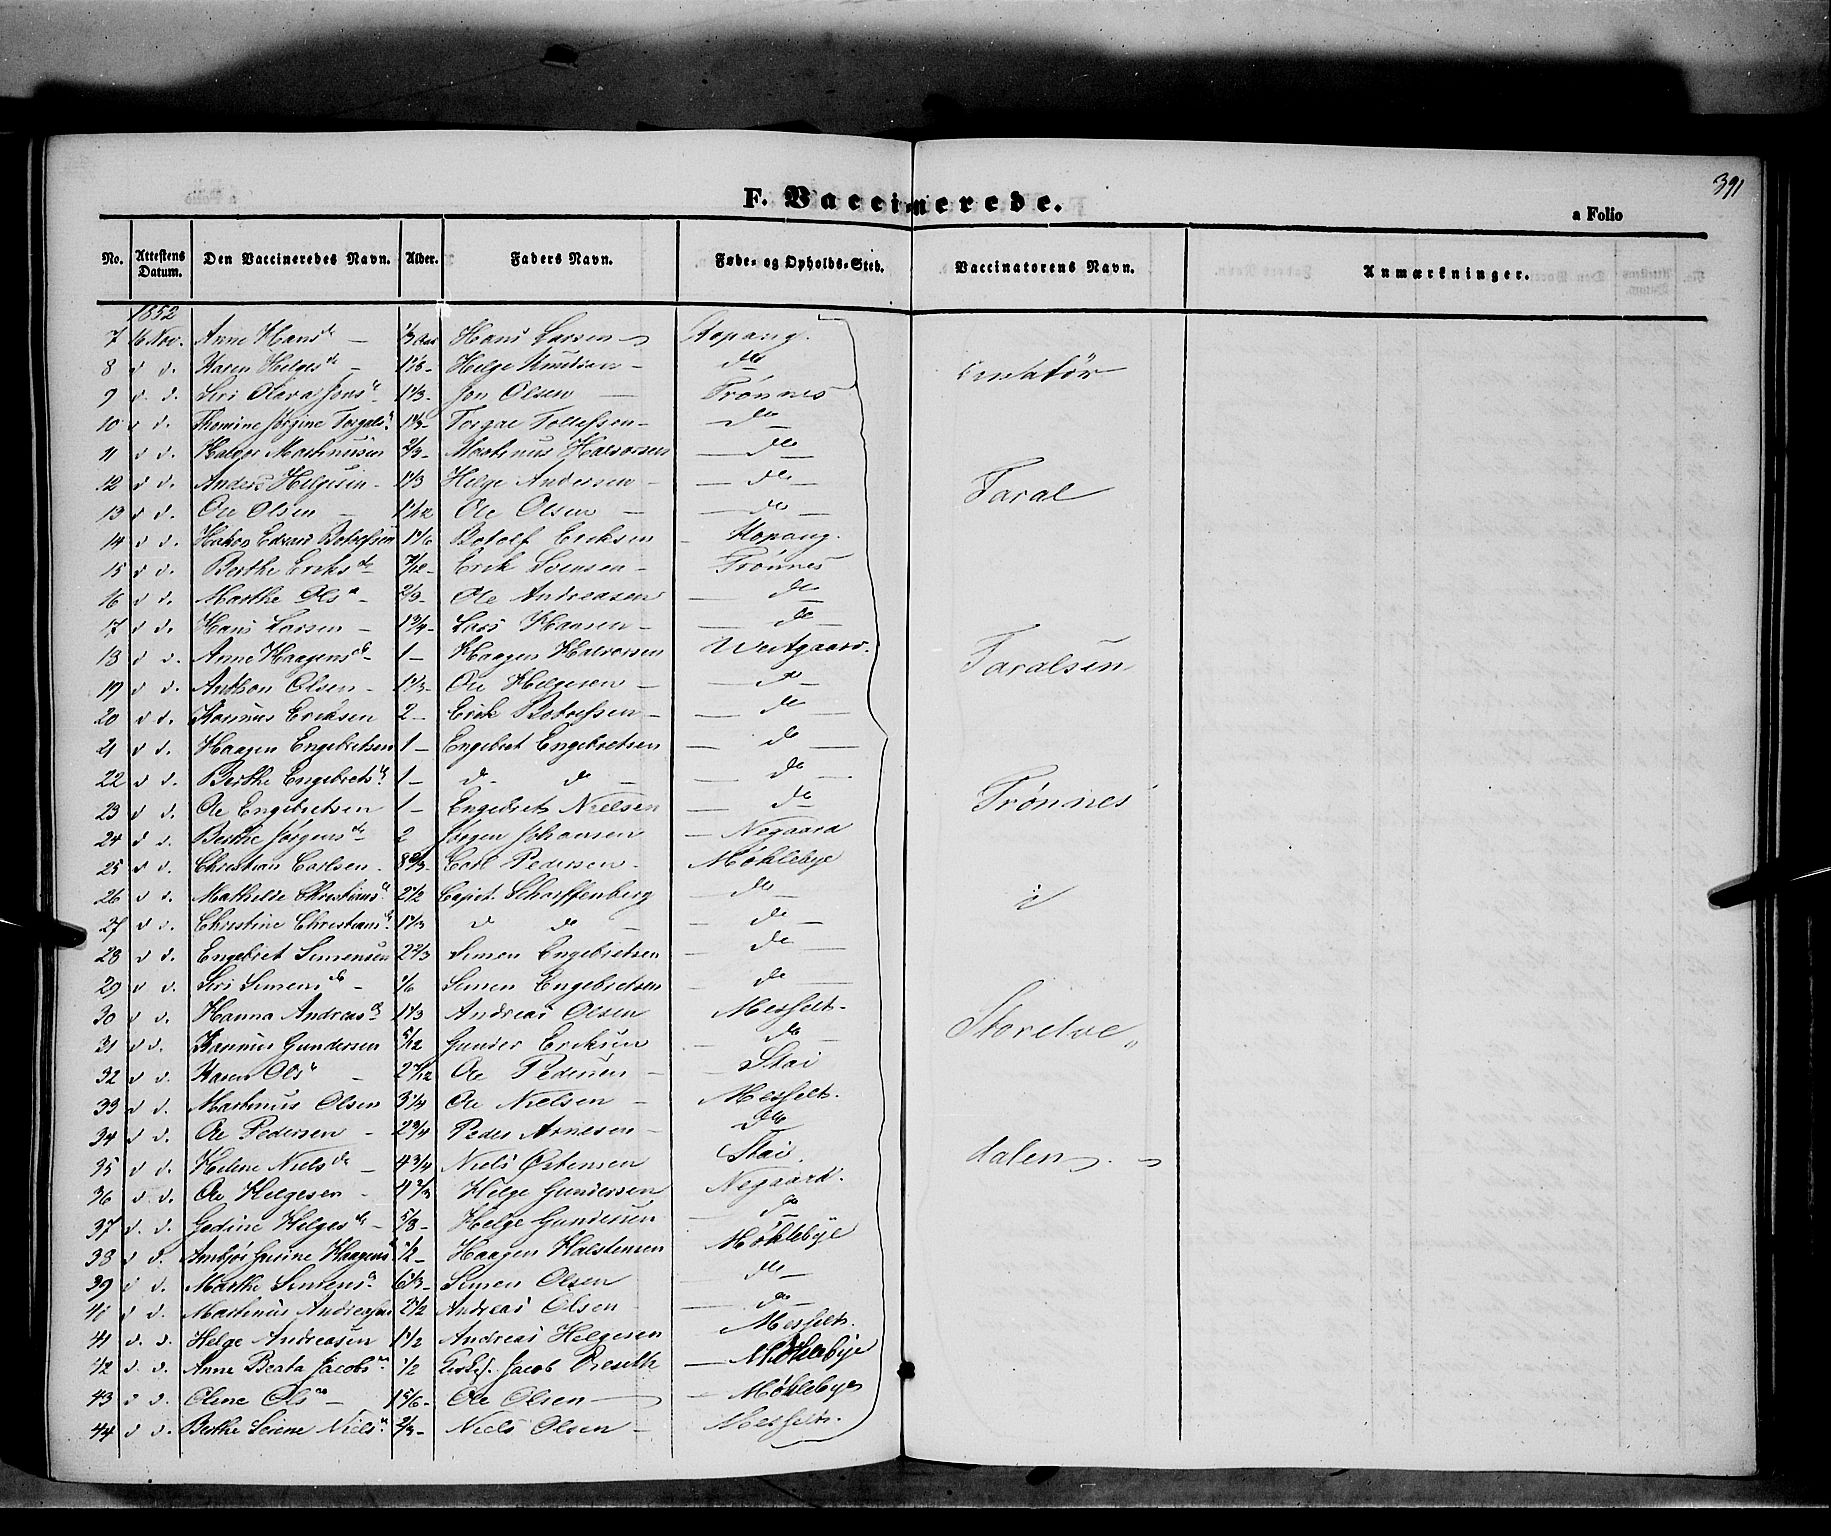 391
F. Vaccinerede.
a Folio
No. Attestens Datum. Den Vaccineredes Navn. Alder. Faders Navn. Føde- og Opholds-Sted. Vaccinatorens Navn. Anmærkninger.
1852
7 16 Nov. Anne Hansd. 1/3 Aar Hans Larsen Kopang.
8 d d. Karen Helgesd. Helge Knudsen do
9 d. d. Siri Olava Jonsd. 1 1/3 Jon Olsen Trønnes
10 d d. Jørgine 1 1/3 do
11 d d. Helge Martinusen 2/3 Martinus Halvorsen do
12 d d. Anders Helgesen 1 1/3 Helge Andersen do
13 d d. Ole Olsen 1 1/12 Ole Olsen do
14 d d. Edvard 1 1/6 Botolf Eriksen Kopang.
15 d d. Berthe Eriksd. 7/12 Erik Svensen Trønnes
16 d d. Marthe Olsd. 2/3 Ole Andreasen do
17 d d. Hans Larsen 1 3/4 Lars Hansen do
18 d d. Anne Haagensd. 1 Haagen Halvorsen Westgaard.
19 d d. Anthon Olsen 1 1/3 Ole Helgesen do
20 d d. Rasmus Eriksen 2 Erik Botolfsen do
21 d d. Haagen Engebretsen 1 Engebret Engebretsen do
22 d d. Berthe Engebretsd. 1 d. do do
23 d d. Ole Engebretsen 1 Engebret Nielsen do
24 d d. Berthe Jørgensd. 2 Jørgen Johansen Negaard
25 d d. Christian Carlsen 8 2/3 Carl Pedersen Møklebye
26 d d. Mathilde Christiansd. 2 1/2 Capit. Scharffenberg do
27 d d. Christine Christiansd. 1 1/3 d do do
28 d d. Engebret Simensen 2 2/3 Simen Engebretsen do
29 d d. Siri Simensd. 1/6 Simen Engebretsen do
30 d d. Hanna Andreasd. 1 1/3 Andreas Olsen Messelt.
31 d d. Rasmus Gundersen 5/12 Gunder Eriksen do
32 d d. Karen Olsd. 2 7/12 Ole Pedersen Stai
33 d d. Martinus Olsen 3 1/4 Ole Nielsen Messelt.
34 d d. Ole Pedersen 2 3/4 Peder Arnesen do
35 d d. Helene Nielsd. 4 3/4 Niels Østensen Stai.
36 d d. Ole Helgesen 4 2/3 Helge Gundersen Negaard.
37 d. d. Gedine Helgesd. 5/8 Helge Gundersen do
38 d d. Haagensd. 1/2 Haagen Halstensen Møklebye
39 d d. Marthe Simensd. 6 1/3 Simen Olsen do
40 d d. Martinus Andreasen 2 1/2 Andreas Olsen do
41 d. d. Helge Andreasen 1 1/2 Andreas Helgesen Messelt.
42 d. d. Anne Beata Jacobsd. 1/2 Jacob Møklebye
43 d d. Olene Olsd. 1 5/6 Ole Olsen Møklebye
44 d d. Berthe Sirene Nielsd. 2/3 Niels Olsen Messelt.
Taral
Taralsen
Trønnes
i
Storelve
dalen